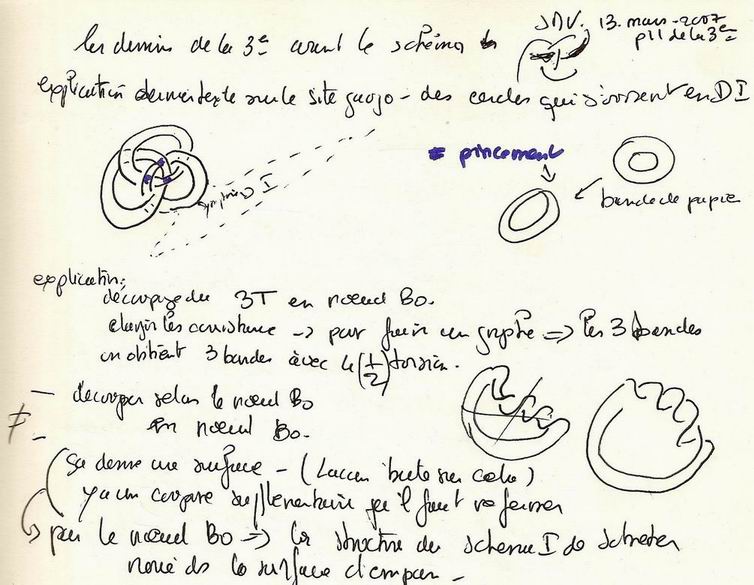 JMV. 13. mars-2007
p11 de la 3e
les dessins de la 3e avant le schéma
explication du texte sur le site gaogoa - des cercles qui s'ouvrent en DI
symphise D I
= pincement
bande de papier
explication:
découpage du 3T en nœud Bo.
élargir les consistance -> pour faire un graphe => les 3 bandes
on obtient 3 bandes avec 4 (1/2) torsion.
- découper selon le nœud Bo
≠
- en nœud Bo.
ça donne une surface - (Lacan bute sur cela)
y a un coupure supplémentaire qu'il faut refermer
pour le nœud Bo => la structure du schema I de
nouée ds la surface d'empan -